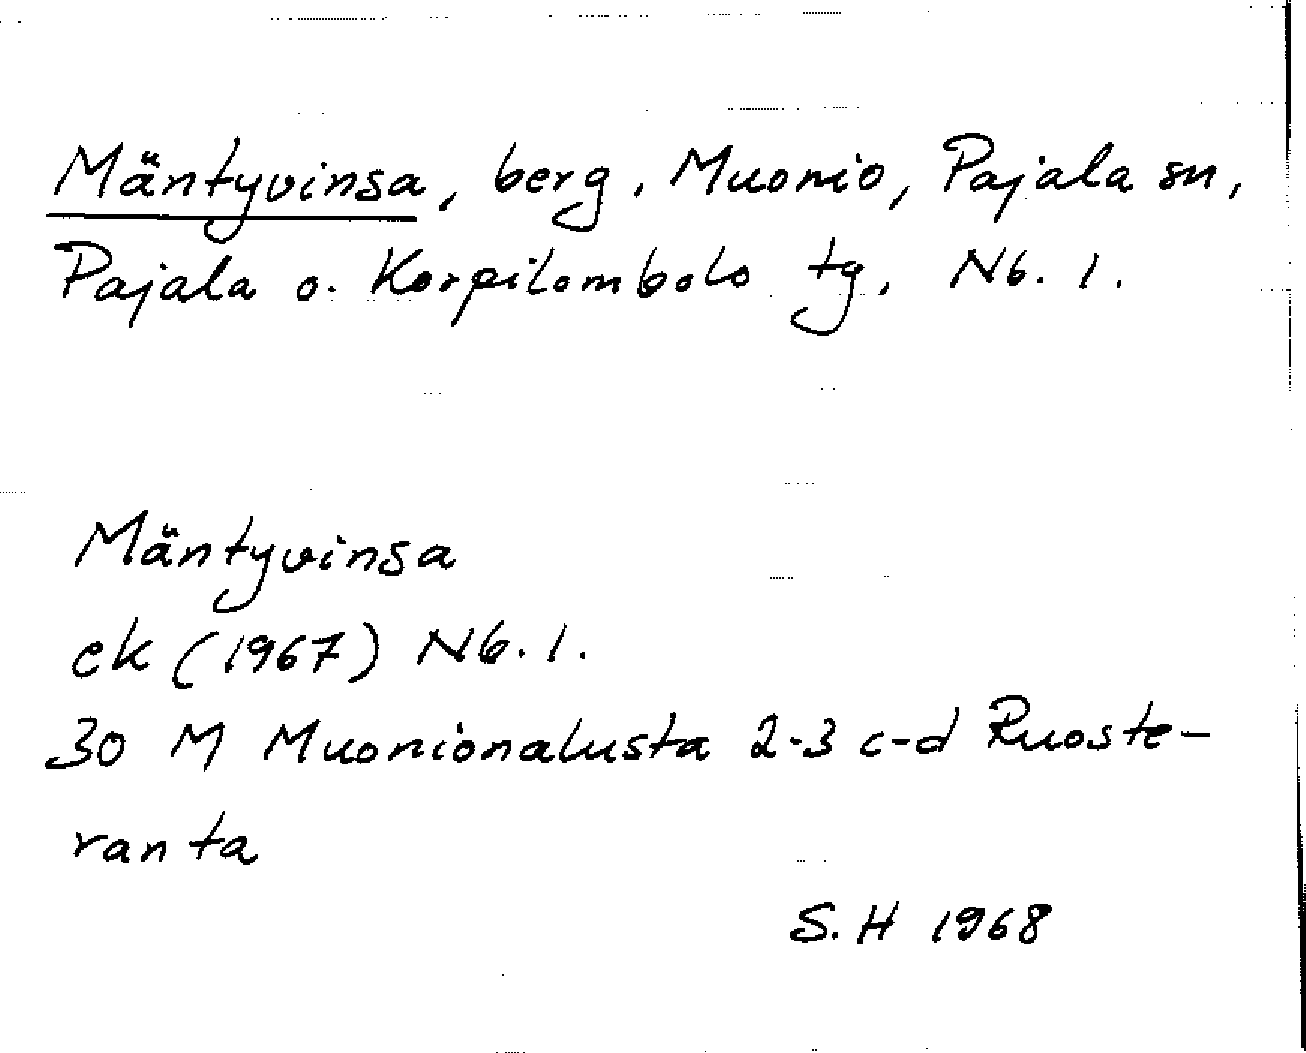 Mäntyvinsa, berg, Muonio, Pajala sn,
Pajala o. Korpilombolo tg, Nb. l.
Mäntyvinsa
ek (1967) Nb. l.
30 M Muonionalusta 2-3 c-d Ruoste-
ranta
S. H 1968